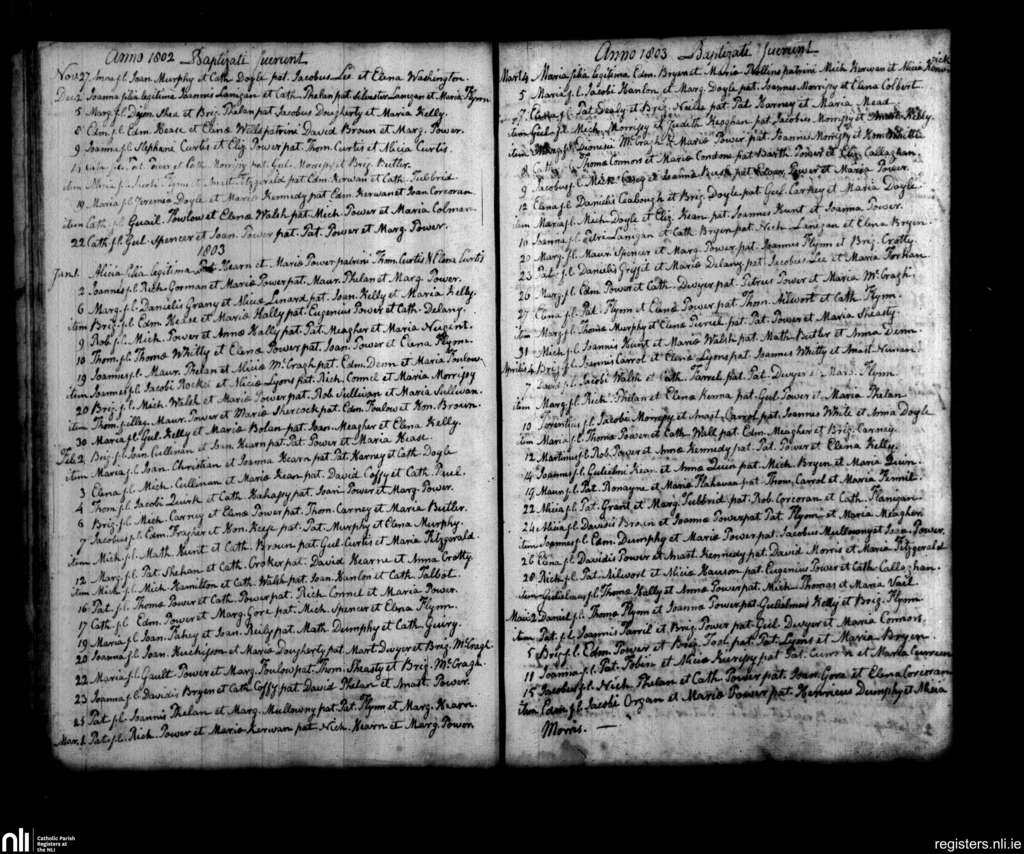 Anno 1802 Baptizati fuerunt
Nov. 27 Anna fl. Joan. Murphy et Cath. Doyle pat. Jacobus Lee et Elena Washington.
Dec. 2 Joanna filia legitima Joannis Lanigan et Cath. Phelan pat. Silvester Lanegan et Maria Flynn
5 Marg. fl. Dyon. Shea et Brig. Phelan pat. Jacobus Dougherty et Maria Kelly.
8 Edm. fl. Edm. Hease et Elena Wells patrini David Broun et Marg. Power.
9 Joanna fl. Stephani Curtis et Eliz. Power pat. Thom. Curtis et Alicia Curtis.
et Cath. Morrissy pat. Gul. Morrissy et Brig. Butler.
item Maria fl. Flynn et Anast. Fitzgerald pat. Edm. Kerwan et Cath. Tubbrid
19 Maria fl. Jeremia Doyle et Maria Kennedy pat. Edm. Kerwan et Joan Corcoran
item Cath. fl. Toulow et Elena Walsh pat. Mich. Power et Maria Colman.
22 Cath. fl. Gul. Spencer et Joan. Power pat. Pat. Power et Marg. Power.
1803
Jan. 1. Alicia filia legitima Hearn et Maria Power patrini Thom. Curtis & Elena Curtis
2 Joannes fl. Rich. Gorman et Maria Power pat. Maur. Phelan et Marg. Power.
6 Marg. fl. Danielis Grany et Alicia Linard pat. Joan. Kelly et Maria Kelly.
item Brig. fl. Edm. Hease et Maria Hally pat. Eugenius Power et Cath. Delany.
9 Rob. fl. Mich. Power et Anna Hally pat. Pat. Meagher et Maria Neigent.
10 Thom. fl. Thoma Whitty et Elena Power pat. Joan. Power et Elena Flynn.
19 Joannes fl. Maur. Phelan et Alicia McGragh pat. Edm. Denn et Maria Toulow.
item Joannes fl. Jacobi Rocke et Alicia Lyons pat. Rich. Connel et Maria Morrissy
20 Brig. fl. Mich. Walsh et Maria Power pat. Rob. Sullivan et Maria Sullivan.
item Thom. filius Maur. Power et Maria Shercock pat. Edm. Toulow et Hon. Broun.
30 Maria fl. Gul. Kelly et Maria Bolan pat. Joan. Meagher et Elena Kelly.
Feb. 2 Brig. fl. Joan. Cullinan et Joan. Hearn pat. Pat. Power et Maria Hease.
item Maria fl. Joan. Christian et Joanna Hearn pat. Pat. Harney et Cath. Doyle
3 Elena fl. Mich. Cullinan et Maria Kean pat. David Coffy et Cath. Prue.
4 Thom. fl. Jacobi Quirk et Cath. Hahassy pat. Joan. Power et Marg. Power.
6 Brig. fl. Mich. Carney et Elena Power pat. Thom. Carney et Maria Butler.
7 Jacobus fl. Edm. Frazher et Hon. Keefe pat. Pat. Murphy et Elena Murphy.
item Mich. fl. Math. Hunt et Cath. Broun pat. Gul. Curtis et Maria Fitzgerald.
12 Marg. fl. Pat. Shehan et Cath. Croker pat. David Hearne et Anna Crotty
item Mich. fl. Mich. Hamilton et Cath. Walsh pat. Joan. Hanlon et Cath. Talbot.
16 Pat. fl. Thoma Power et Cath. Power pat. Rich. Connel et Maria Power.
17 Cath. fl. Edm. Power et Marg. Gore pat. Mich. Spencer et Elena Flynn.
19 Maria fl. Joan. Fahey et Joan. Reily pat. Math. Dumphy et Cath. Guiry.
20 Joanna fl. Joan. Huchisson et Maria Dougherty pat. Mart. Dwyer et Brig. McGragh
22 Maria fl. Gault. Power et Marg. Toulow pat. Thom. Sheasty et Brig. McGragh.
23 Joanna fl. Davidis Bryen et Cath. Coffy pat. David Phelan et Anast. Power.
25 Pat. fl. Joannis Phelan et Marg. Mullowny pat. Pat. Flynn et Marg. Hearn.
Mar. 1 Pat. fl. Rich. Power et Maria Kerwan pat. Nich. Hearn et Marg. Power
Anno 1803 Baptizati fuerunt
Mart. 4 Maria filia legitima Edm. Bryen et Maria Rollins patrini Mich. Kerwan et Alicia
5 Maria fl. Jacobi Hanlon et Marg. Doyle pat. Joannes Morrissy et Elena Colbert.
7 Elena fl. Pat. Sealy et Brig. Neille pat. Pat. Harney et Maria Mead.
item Gul. fl. Mich. Morrissy et Judith Keoghan pat. Jacobus Morrissy et Anast. Kelly.
item fl. Dionisii McGragh et Maria Power pat. Joannes Morrissy et
8 Thoma Connors et Maria Condon pat. Barth. Power et Eliz. Callaghan.
9 Jacobus fl. et Joanna pat. Power et Maria Power.
12 Elena fl. Danielis Ceabough et Brig. Doyle pat. Gul. Carney et Maria Doyle
item Maria fl. Mich. Doyle et Eliz. Kean pat. Joannes Hunt et Joanna Power.
10 Joanna fl. Petri Lanigan et Cath. Bryen pat. Nich. Lanegan et Elena Bryen
20 Marg. fl. Maur. Spencer et Marg. Power pat. Joannes Flynn et Brig. Crotty.
23 Pat. fl. Danielis Griffit et Maria Delany pat. Jacobus Lee et Maria
26 Marg. fl. Edm. Power et Cath. Dwyer pat. Petrus Power et Maria McGragh.
27 Elena fl. Pat. Flynn et Elena Power pat. Thom. Ailwort et Cath. Flynn.
item Marg. fl. Thoma Murphy et Elena Pierce pat. Pat. Power et Maria Sheasty.
31 Mich. fl. Joannis Hunt et Maria Walsh pat. Math. Butler et Anna Denn.
Aprilis 4 Brig. fl. Joannis Carrol et Elena Lyons pat. Joannes Whitty et Anast. Neiwan.
7 David fl. Jacobi Walsh et Cath. Farrel pat. Pat. Dwyer et Marg. Flynn.
item Marg. fl. Rich. Phelan et Elena Kenna pat. Gul. Power et Maria Phelan
10 Florentius fl. Jacobi Morrissy et Anast. Carrol pat. Joannes White et Anna Doyle
item Maria fl. Thoma Power et Cath. Wall pat. Edm. Meagher et Brig. Carney.
12 Martinus fl. Rob. Power et Anna Kennedy pat. Pat. Power et Elena Kelly.
14 Joannes fl. Gulielmi Kean et Anna Quin pat. Mich. Bryen et Maria Quin.
19 Maur. fl. Pat. Ronayne et Maria Flahavan pat. Thom. Carrol et Maria Fennil.
22 Alicia fl. Pat. Grant et Marg. Tubbrid pat. Rob. Corcoran et Cath. Flanigan.
24 Alicia fl. Davidis Broun et Joanna Power pat. Pat. Flynn et Maria Meagher
item Joannes fl. Edm. Dumphy et Maria Power pat. Jacobus Mullowny et Joan. Power.
26 Elena fl. Davidis Power et Anast. Kennedy pat. David Morris et Maria Fitzgerald
28 Rich. fl. Pat. Ailwort et Alicia Hanson pat. Eugenius Power et Cath. Callaghan.
item Gulielmus fl. Thoma Hally et Anna Power pat. Mich. Thomas et Maria Vail
Maii 2 Daniel fl. Thoma Flynn et Joanna Power pat. Gulielmus Kelly et Brig. Flynn
item Pat. fl. Joannis Farril et Brig. Power pat. Gul. Dwyer et Maria Connors.
5 Brig. fl. Edm. Power et Brig. Tool pat. Pat. Lyons et Maria Bryen.
11 Joanna fl. Pat. Tobin et Alicia pat. Pat. Curreen et Maria Curreen
15 Jacobus fl. Nich. Phelan et Cath. Power pat. Joan. Gore et Elena Corcoran
item Edm. fl. Jacobi Organ et Maria Power pat. Henricus Dumphy et Alicia
Morris.
nli
Catholic Parish
Registers at
the NLI
registers.nli.ie